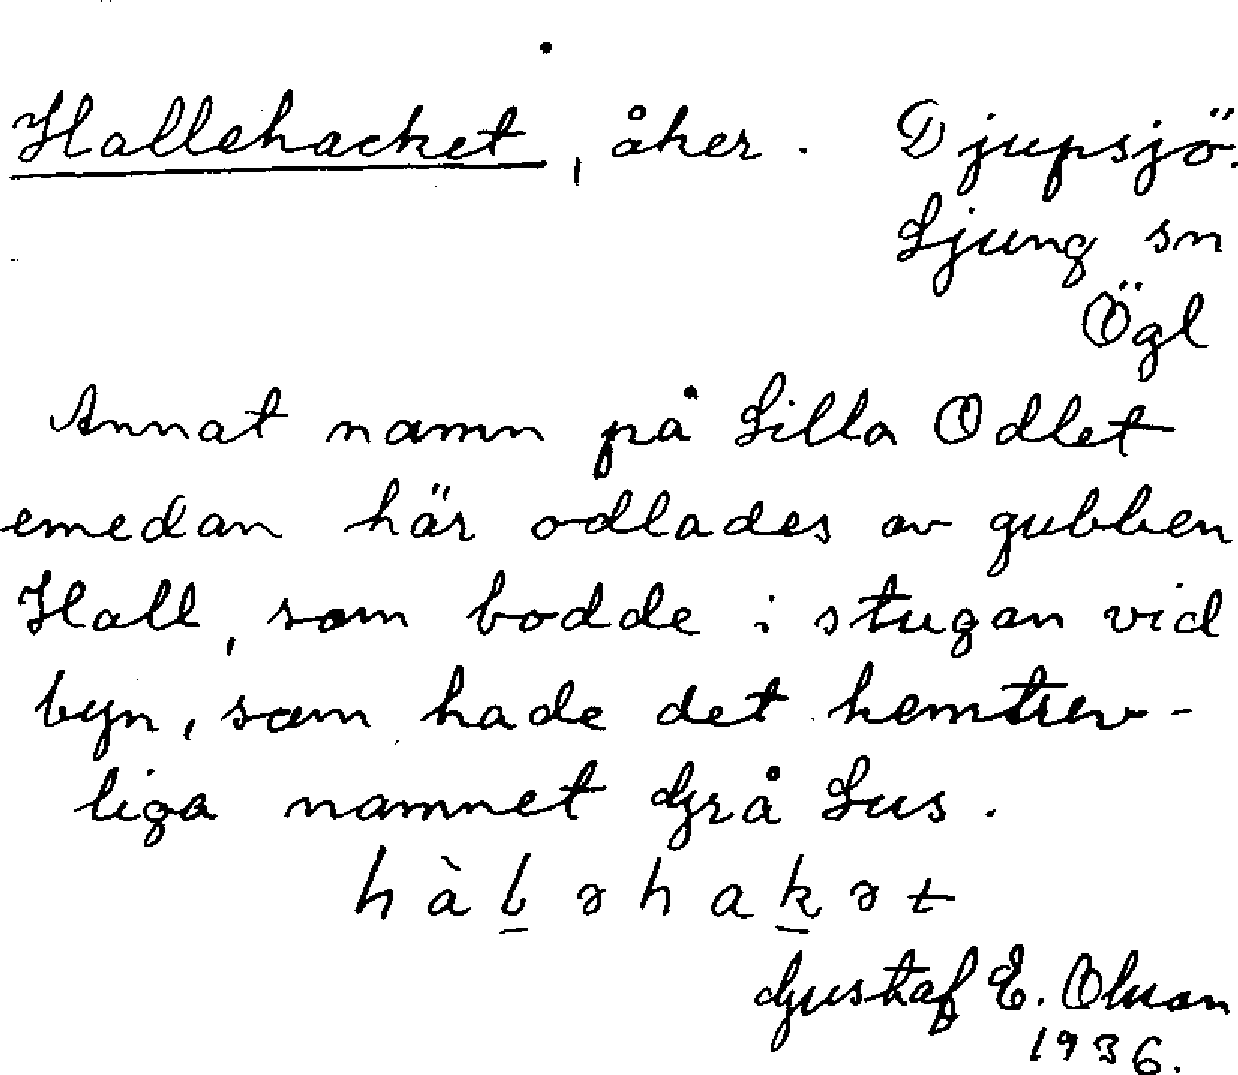 Hallehacket, åker. Djupsjö.
Ljung sn
Ögl
Annat namn på Lilla Odlet
emedan här odlades av gubben
Hall, som bodde i stugan vid
byn, som hade det hemtrev-
liga namnet Grå Lus.
hàl̲əhak̲ət
Gustaf E. Olsson
1936.